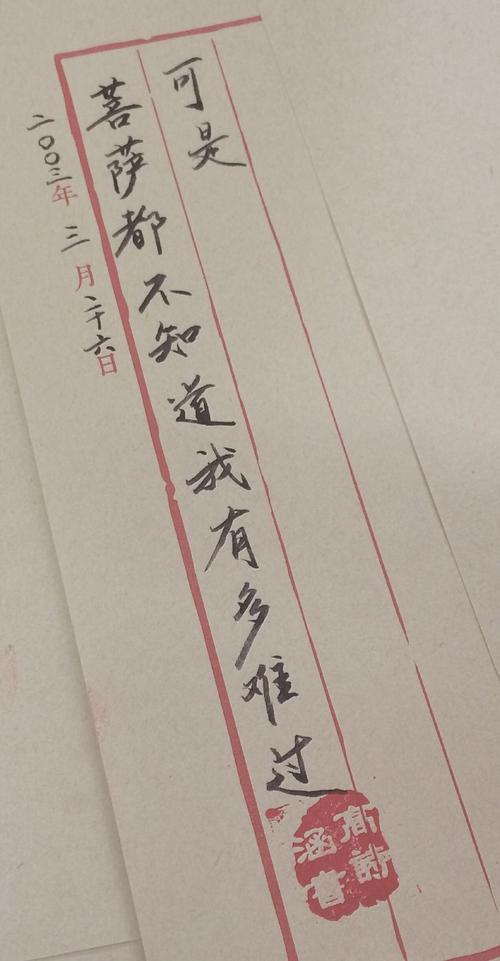 可是
菩萨都不知道我有多难过
二〇〇三年三月二十六日
高
涵音